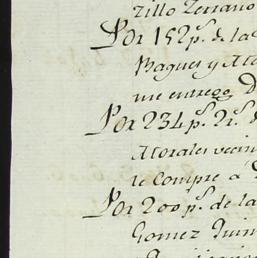 zillo Terrano
Por 152 p.s de la
Baques y Mo
me entrego D
Por 234 p.s 2 r.s d
Morales vecin
le Compre a
Por 200 p.s de la
Gomez Quin